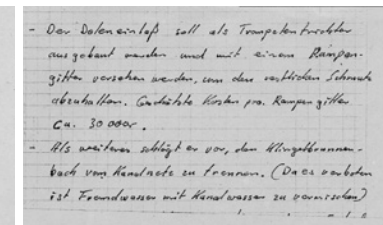 - Der Doleneinlaß soll als Trompetentrichter
ausgebaut werden und mit einem Rampen-
gitter versehen werden, um den restlichen Schmutz
abzuhalten. Geschätzte Kosten pro. Rampengitter
ca. 30 000.-
- Als weiteres schlägt er vor, den Klingelbrunnen-
bach vom Kanalnetz zu trennen. (Da es verboten
ist Fremdwasser mit Kanalwasser zu vermischen)